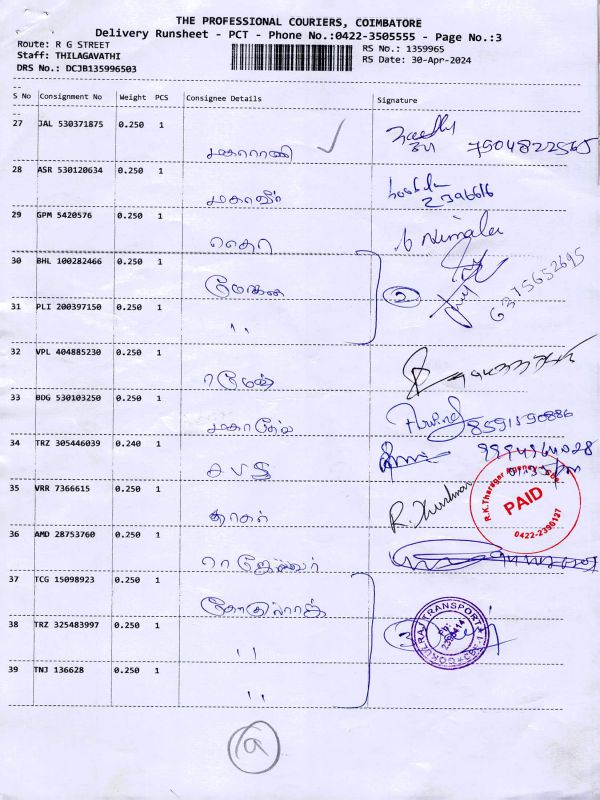 THE PROFESSIONAL COURIERS, COIMBATORE
Delivery Runsheet - PCT - Phone No.:0422-3505555 - Page No.:3
Route: R G STREET
RS No.: 1359965
Staff: THILAGAVATHI
RS Date: 30-Apr-2024
DRS No.: DCJB135996503
S No Consignment No Weight PCS Consignee Details Signature
27 JAL 530371875 0.250 1
மகாராணி 7904822565
28 ASR 530120634 0.250 1
மகாவீர் 2396616
29 GPM 5420576 0.250 1
N Nirmala
30 BHL 100282466 0.250 1
மோகன 2 6375652695
31 PLI 200397150 0.250 1
"
32 VPL 404885230 0.250 1
ரமேஷ்
33 BDG 530103250 0.250 1
மகாதேவ Arvind 8591590886
34 TRZ 305446039 0.240 1
35 VRR 7366615 0.250 1
தாகர் R.
R.K.Tharagar Agency
PAID
0422-2390127
36 AMD 28753760 0.250 1
ராஜேஸ்வர்
37 TCG 15098923 0.250 1
கோகுல்ராஜ்
38 TRZ 325483997 0.250 1
" 3
GOKUL RAJ TRANSPORT
39 TNJ 136628 0.250 1
"
9